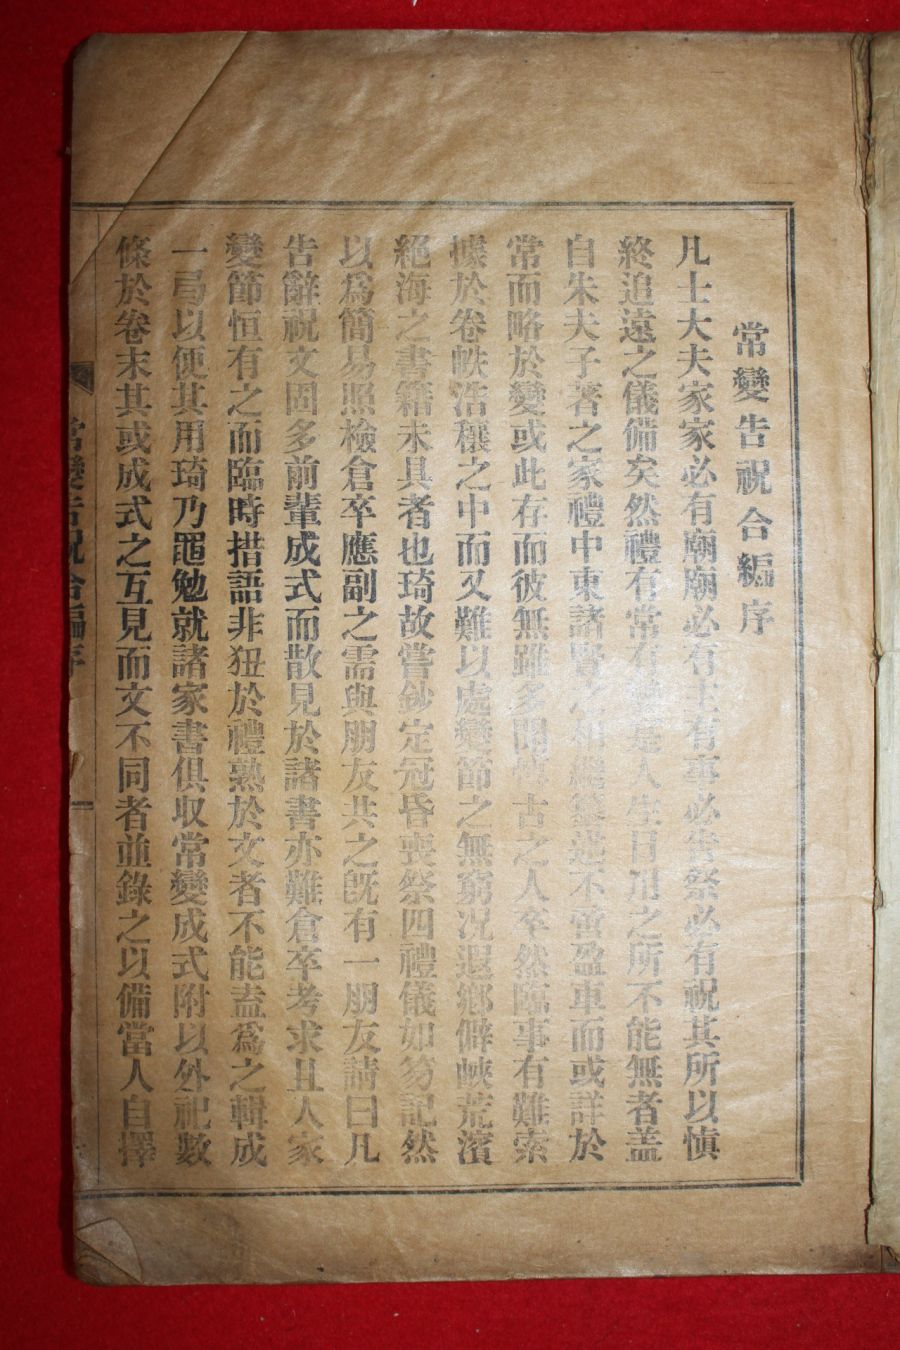 常變告祝合編序
凡士大夫家家必有廟廟必有主有事必告祭必有祝其所以愼
終追遠之儀備矣然禮有常有變是人生日用之所不能無者盖
自朱夫子著之家禮中東諸賢之相繼纂述不啻盈車而或詳於
常而略於變或此存而彼無雖多聞 古之人卒然臨事有難索
據於卷帙浩穰之中而又難以處變節之無窮况遐鄕僻峽荒濱
絕海之書籍未具者也琦故嘗鈔定冠昏喪祭四禮儀如笏記然
以爲簡易照檢倉卒應副之需與朋友共之旣有一朋友請曰凡
告辭祝文固多前輩成式而散見於諸書亦難倉卒考求且人家
變節恒有之而臨時措語非狃於禮熟於文者不能盍爲之輯成
一弓以便其用琦乃黽勉就諸家書俱収常變成式附以外祀數
條於卷末其或成式之互見而文不同者並錄之以備當人自擇
常變告祝合編序
一